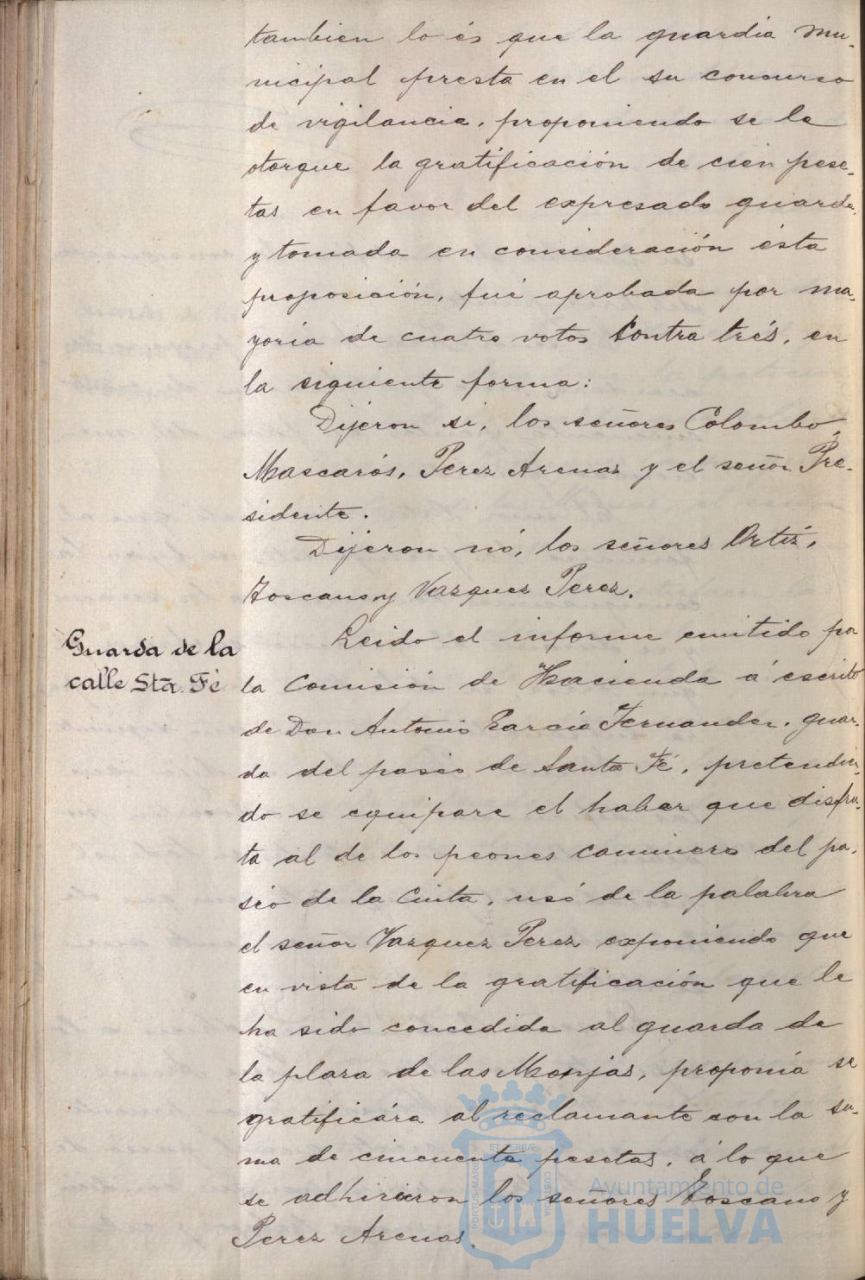 tambien lo és que la guardia mu-
nicipal presta en el su concurso
de vigilancia, proponiendo se le
otorgue la gratificación de cien pese-
tas en favor del expresado guarda,
y tomada en consideración ésta
proposición, fué aprobada por ma-
yoria de cuatro votos contra trés, en
la siguiente forma:
Dijeron si, los señores Colombo,
Mascarós, Perez Arenas y el señor Pre-
sidente.
Dijeron nó, los señores Ortiz,
Toscano y Vazquez Perez.
Guarda de la
calle Sta. Fé
Leido el informe emitido por
la Comisión de Hacienda á escrito
de Don Antonio Garcia Fernandez, guar-
da del paseo de Santa Fé, pretendien-
do se equipare el haber que disfru-
ta al de los peones camineros del pa-
seo de la Cinta, usó de la palabra
el señor Vazquez Perez exponiendo que
en vista de la gratificación que le
ha sido concedida al guarda de
la plaza de las Monjas, proponia se
gratificára al reclamante con la su-
ma de cincuenta pesetas, á lo que
se adhirieron los señores Toscano y
Perez Arenas.
Ayuntamiento de
HUELVA